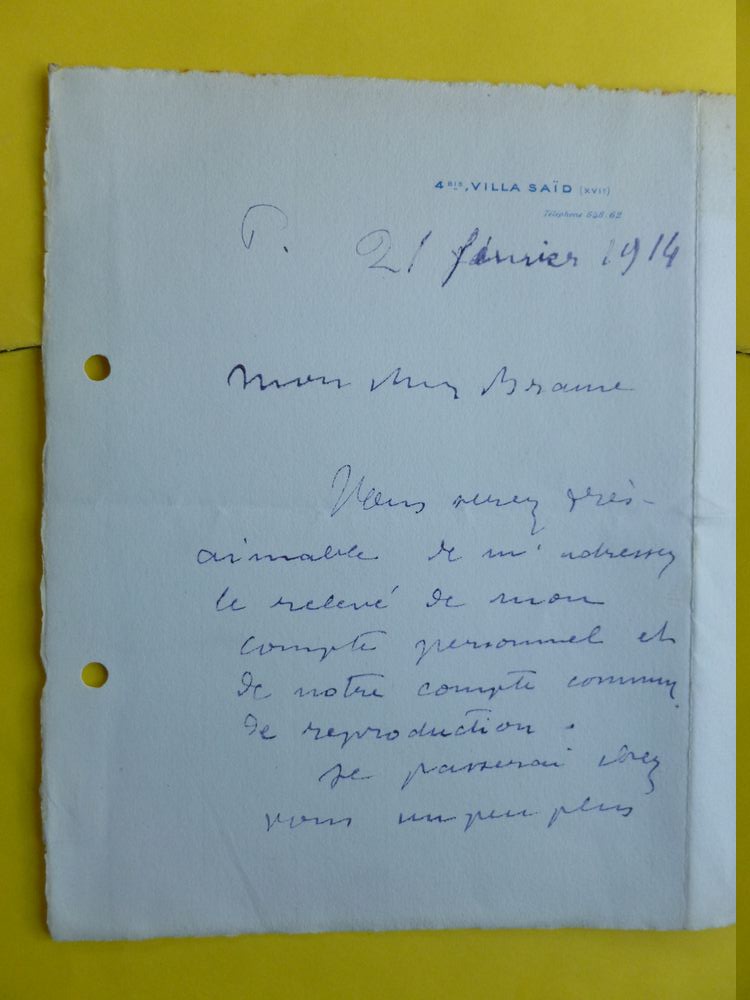 4 BIS, VILLA SAÏD (XVIe)
Téléphone 648-62
P. 21 février 1914
Mon cher Brame
Vous serez très-
aimable de m'adresser
le relevé de mon
compte personnel et
de notre compte commun
de reproduction.
Je passerai chez
vous un peu plus